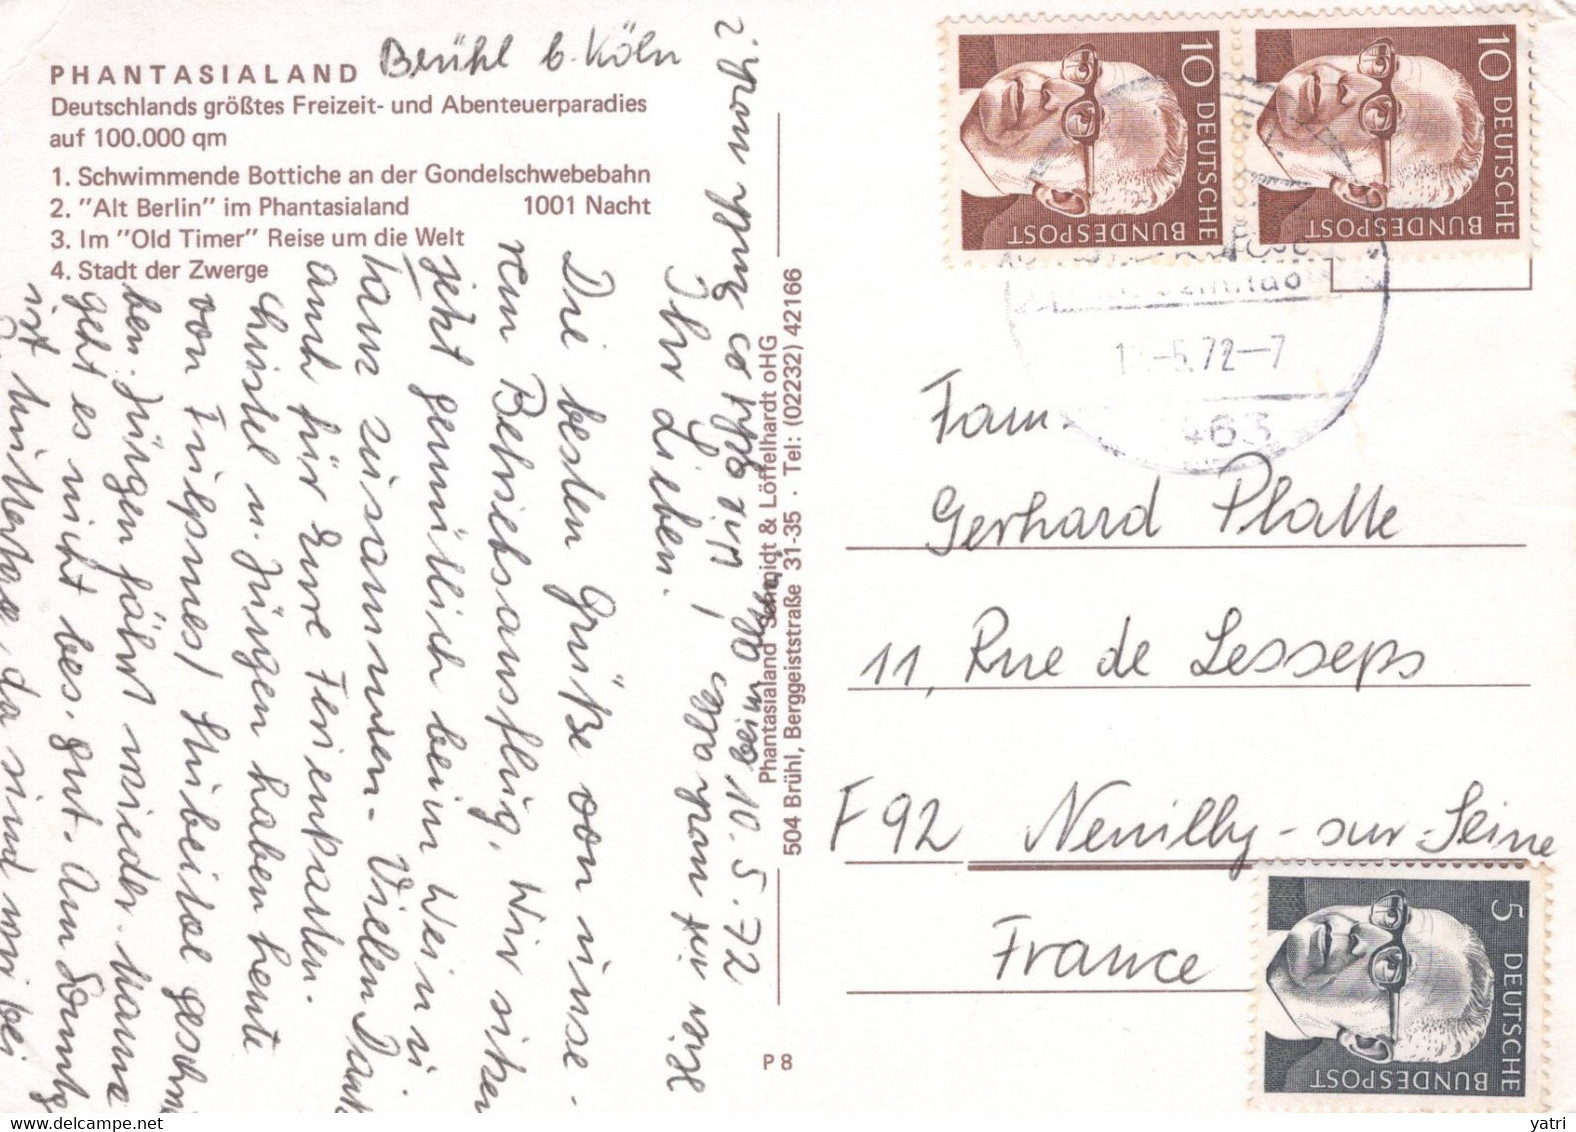 PHANTASIALAND
Brühl b. Köln
Deutschlands größtes Freizeit- und Abenteuerparadies
auf 100.000 qm
1. Schwimmende Bottiche an der Gondelschwebebahn
2. "Alt Berlin" im Phantasialand 1001 Nacht
3. Im "Old Timer" Reise um die Welt
4. Stadt der Zwerge
beim 10.5.72
Ihr Lieben!
Die besten Grüße von unse-
rem Betriebsausflug. Wir sitzen
jetzt gemütlich beim Wein
zusammen. Vielen Dank
auch für Eure Ferienkarten.
Christel u. Jürgen haben heute
von
ben. Jürgen fährt wieder. Mama
geht es nicht bes. gut. Am Sonntg
ist Muttertag, da sind wir bei
Phantasialand Schmidt & Löffelhardt oHG
504 Brühl, Berggeiststraße 31-35 · Tel: (02232) 42166
P 8
10 DEUTSCHE BUNDESPOST
10 DEUTSCHE BUNDESPOST
-5.72-7
463
Fam.
Gerhard Platte
11, Rue de Lesseps
F 92 Neuilly-sur-Seine
France
5 DEUTSCHE BUNDESPOST
delcampe.net
yatri